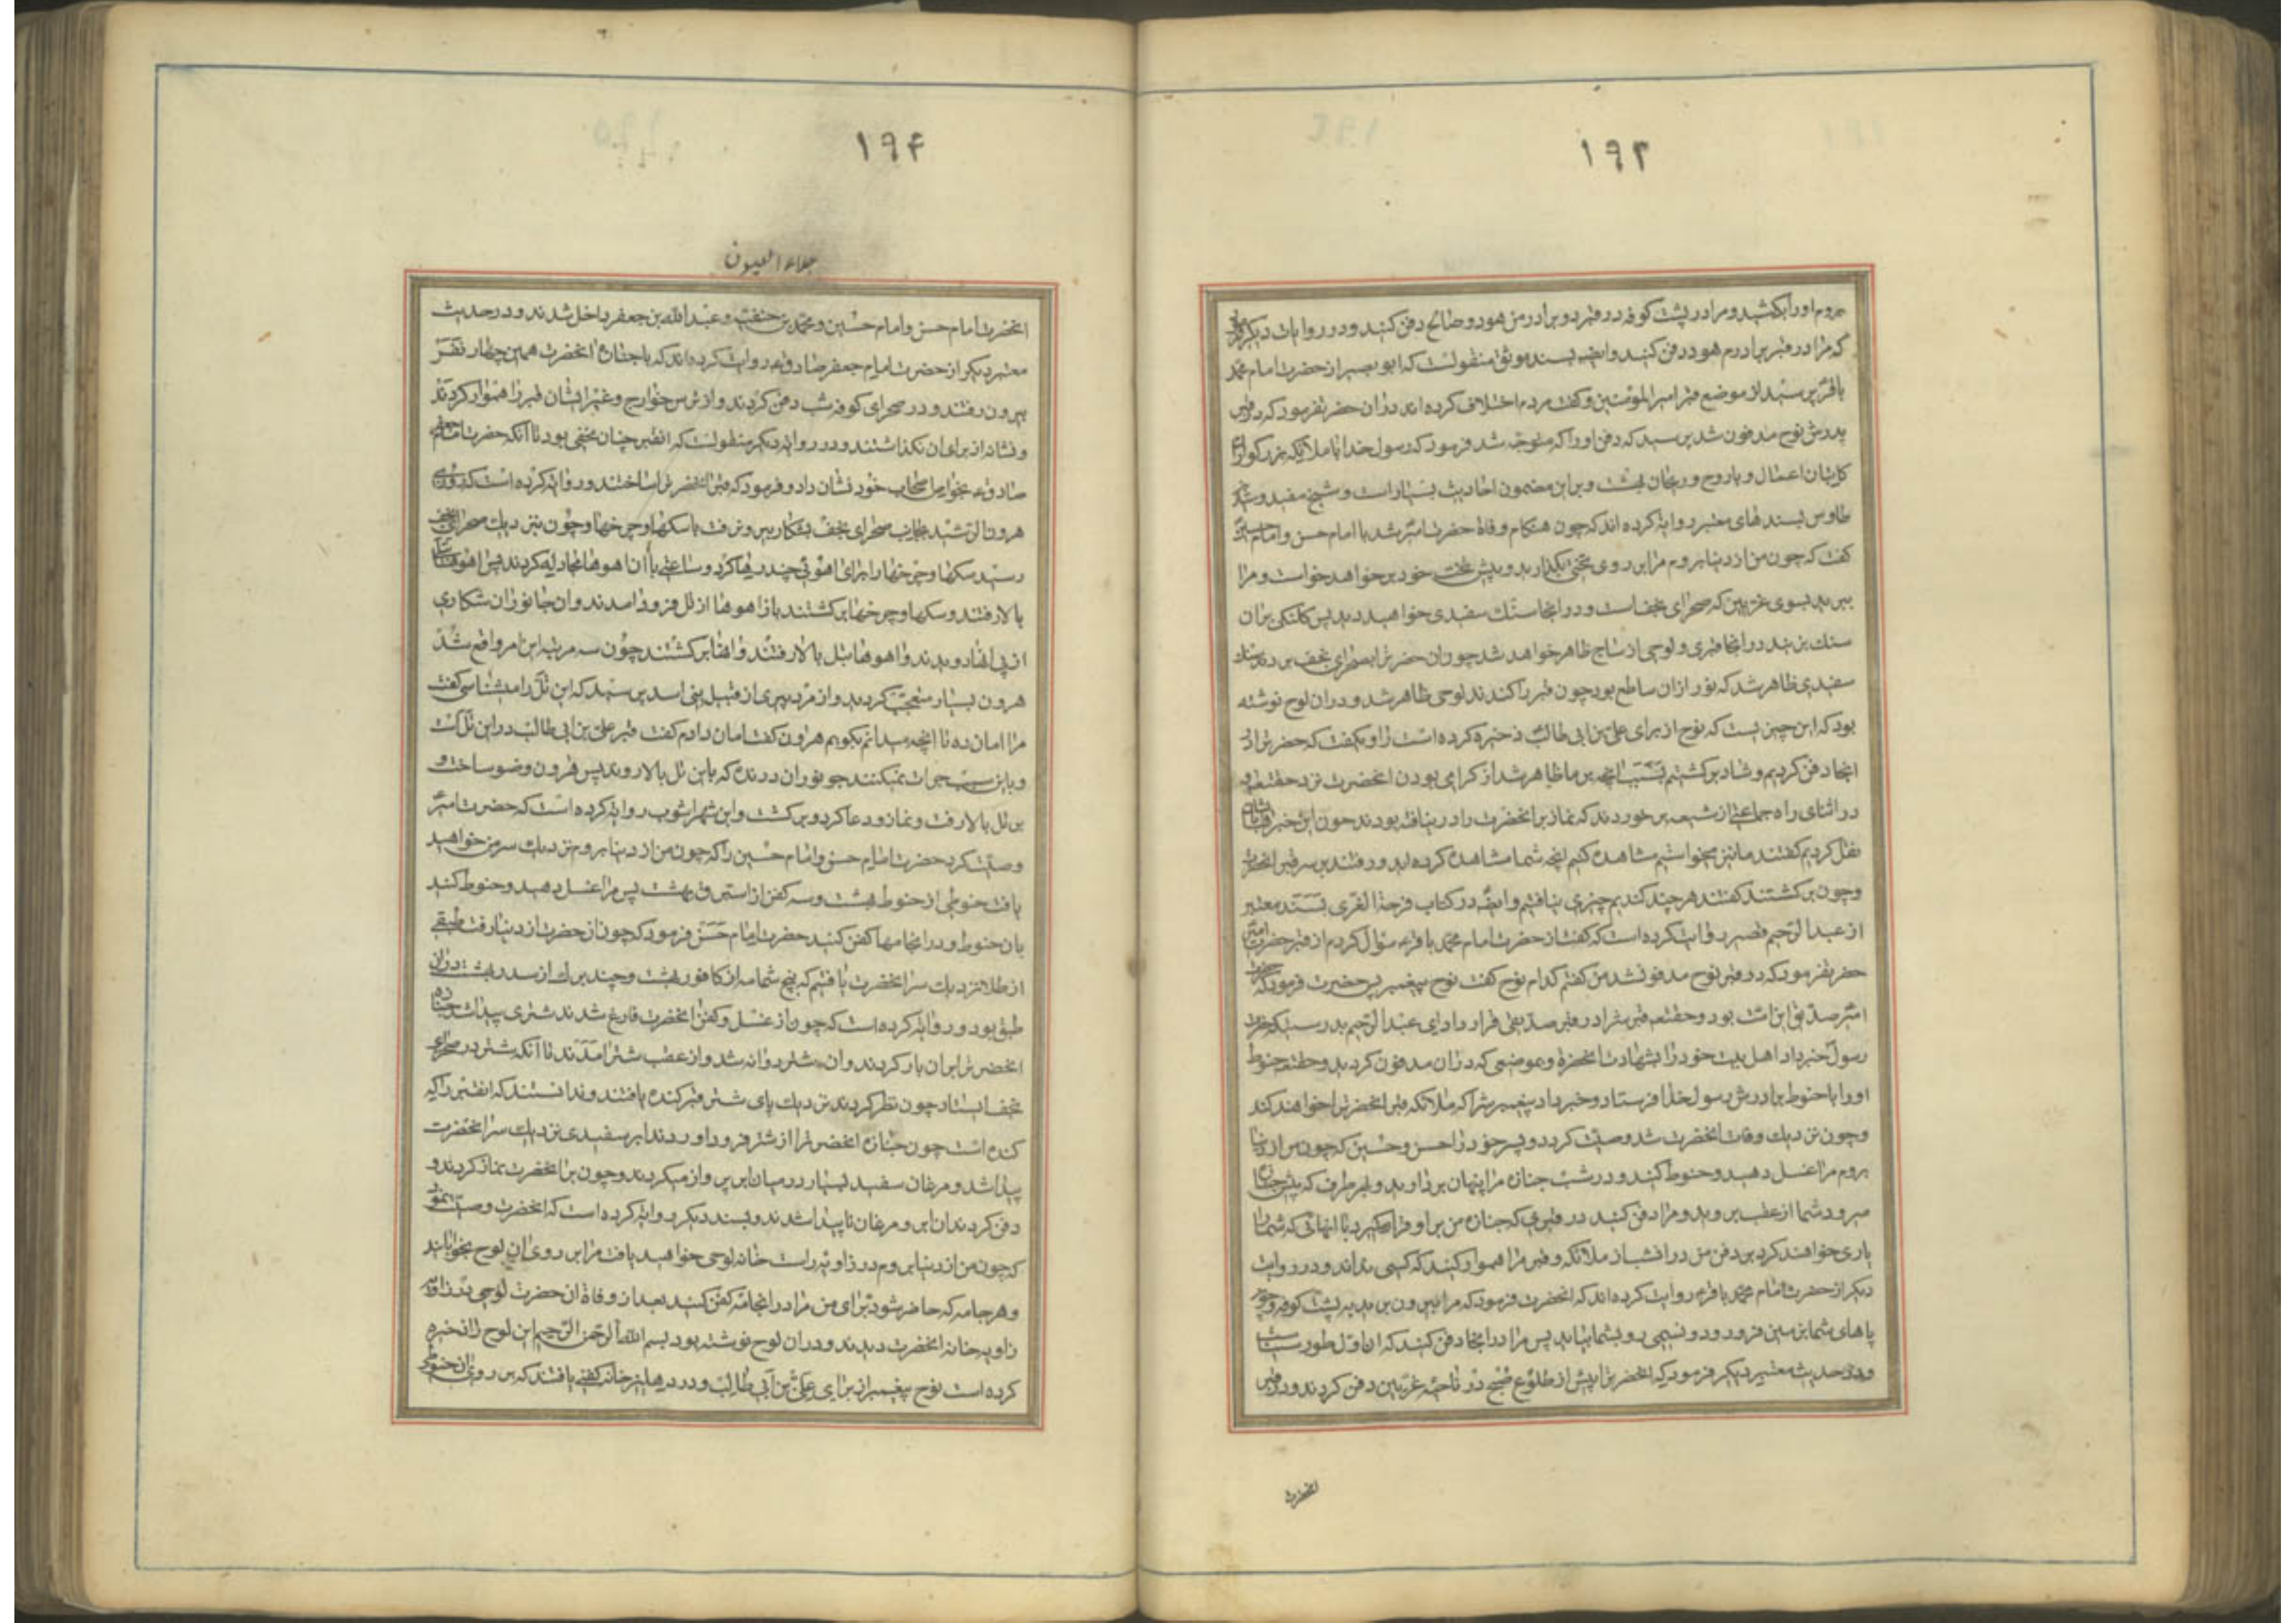 ۱۹۳
بروم او را بکشید و مرا در پشت کوفه در قبر دو برادر من هود و صالح دفن کنید و در روایات دیگر
که مرا در قبر برادرم هود دفن کنید و ایضا بسند موثق منقولست که ابو بصیر از حضرت امام محمد
باقر پرسید از موضع قبر امیرالمؤمنین و گفت مردم اختلاف کرده اند در ان حضرت فرمود که در قبر
پدرش نوح مدفون شد پرسید که دفن او را که متوجه شد فرمود که رسول خدا با ملایکه بزرگوار
کاتبان اعمال و با روح و ریحان بهشت و بر این مضمون احادیث بسیار است و شیخ مفید و سید
طاوس بسندهای معتبر روایة کرده اند که چون هنکام وفاة حضرت امیر شد با امام حسن و امام حسین
گفت که چون من از دنیا بروم مرا بر روی تختی بگذارید و پیش تخت خود بر خواهد خواست و مرا
ببرید بسوی غریین که صحرای نجف است و در انجا سنک سفیدی خواهید دید پس کلنکی بر ان
سنک بزنید در انجا قبری و لوحی از ساج ظاهر خواهد شد چون ان حضرترا بصحرای نجف بردند سنک
سفیدی ظاهر شد که نور از ان ساطع بود چون قبر را کندند لوحی ظاهر شد و در ان لوح نوشته
بود که این چیزیست که نوح از برای علی بن ابی طالب ذخیره کرده است راوی گفت که حضرترا در
انجا دفن کردیم و شاد برکشتیم بسبب انچه بر ما ظاهر شد از کرامی بودن انحضرت نزد حقتعم و
در اثنای راه جماعتی از شیعه بر خوردند که نماز بر انحضرت را در نیافته بودند چون این خبر را بایشان
نقل کردیم گفتند ما نیز میخواستیم مشاهده کنیم انچه شما مشاهده کرده اید و رفتند بر سر قبر انحضرت
و چون برکشتند گفتند هر چند کندیم چیزی نیافتیم و ایضا در کتاب فرحة الغری بسند معتبر
از عبدالرحیم قصیر روایت کرده است که گفت از حضرت امام محمد باقر ع سؤال کردم از قبر حضرت امیر
حضرت فرمود که در قبر نوح مدفون شد من گفتم کدام نوح گفت نوح پیغمبر پس حضرت فرمود که حضرت
امیر صدیق این امت بود و حقتعم قبرشرا در قبر صدیقی قرار داد ای عبدالرحیم بدرستیکه حضرت
رسول خبر داد اهل بیت خود را بشهادت انحضرة و بموضعی که در ان مدفون گردید و حقتعم حنوط
او را با حنوط برادرش رسول خدا فرستاد و خبر داد پیغمبرشرا که ملائکه قبر انحضرترا خواهند کند
و چون نزدیک وفات انحضرت شد وصیت کرد دو پسر خود را حسن و حسین که چون من از دنیا
بروم مرا غسل دهید و حنوط کنید و در شب جنازه مرا پنهان بردارید و بهر طرف که پیش جنازه
میرود شما از عقب بروید و مرا دفن کنید در قبری که جنازه من بر او قرار گیرد با انهائی که شما را
یاری خواهند کرد بر دفن من در انشب از ملائکه و قبر مرا هموار کنید که کسی نداند و در روایت
دیکر از حضرت امام محمد باقر ع روایت کرده اند که انحضرت فرمود که مرا بیرون برید به پشت کوفه و چون
پاهای شما بزمین فرو رود و نسیمی رو بشما بیاید پس مرا در انجا دفن کنید که ان اول طور سیناست
و در حدیث معتبر دیکر فرمود که انحضرترا پیش از طلوع صبح در ناحیه غریین دفن کردند و در قبر
انحضرت
۱۹۴
جلاء العیون
انحضرت امام حسن و امام حسین و محمد بن حنفیه و عبدالله بن جعفر داخل شدند و در حدیث
معتبر دیکر از حضرت امام جعفر صادق ع روایت کرده اند که با جنازه انحضرت همین چهار نفر
بیرون رفتند و در صحرای کوفه شب دفن کردند و از ترس خوارج و غیر ایشان قبر را هموار کردند
و نشانه از برای ان نکذاشتند و در روایة دیکر منقولست که انقبر چنان مخفی بود تا آنکه حضرت امام جعفر
صادق ع بخواص اصحاب خود نشان داد و فرمود که قبر انحضرترا ساختند و روایة کرده است که روزی
هرون الرشید بجانب صحرای نجف بشکار بیرون رفت با سکها و چرخها و چون نزدیک صحرای نجف
رسید سکها و چرخها را برای اهوئی چند رها کرد و ساعتی با ان اهوها مجادله کردند پس اهوها
بالا رفتند و سکها و چرخها برکشتند باز اهوها از تل فرود امدند و ان جانوران شکاری
از پی انها دویدند و اهوها بتل بالا رفتند و انها برکشتند چون سه مرتبه این امر واقع شد
هرون بسیار متعجب گردید و از مرد پیری از قبیل بنی اسد پرسید که این تل را میشناسی گفت
مرا امان ده تا انچه میدانم بگویم هرون گفت امان دادم گفت قبر علی بن ابی طالب در این تل است
و باین سبب جرات نمیکنند جانوران درنده که باین تل بالا روند پس هرون وضو ساخت و
بر تل بالا رفت و نماز و دعا کرد و برگشت و ابن شهراشوب روایة کرده است که حضرت امیر
وصیت کرد حضرت امام حسن و امام حسین را که چون من از دنیا بروم نزدیک سر من خواهید
یافت حنوطی از حنوط بهشت و سه کفن از استبرق بهشت پس مرا غسل دهید و حنوط کنید
بان حنوط و در انجامها کفن کنید حضرت امام حسن فرمود که چون انحضرت از دنیا رفت طبقی
از طلا نزدیک سر انحضرت یافتیم که پنج شمامه از کافور بهشت و چند برک از سدر بهشت در ان
طبق بود و روایة کرده است که چون از غسل و کفن انحضرت فارغ شدند شتری پیدا شد جنازه
انحضرترا بر ان بار کردند و ان شتر روانه شد و از عقب شتر امدند تا آنکه شتر در صحرای
نجف ایستاد چون نظر کردند نزدیک پای شتر قبر کنده یافتند و ندانستند که انقبر را که
کنده است چون جنازه انحضرترا از شتر فرود اوردند ابر سفیدی نزدیک سر انحضرت
پیدا شد و مرغان سفید بسیار در میان ابر پرواز میکردند و چون بر انحضرت نماز کردند و
دفن کردند ان ابر و مرغان ناپیدا شدند و بسند دیکر روایة کرده است که انحضرت وصیت نمود
که چون من از دنیا بروم در زاویه راست خانه لوحی خواهید یافت مرا بر روی ان لوح بخوابانید
و هر جامه که حاضر شود برای من مرا در انجامه کفن کنید بعد از وفاة ان حضرت لوحی در زاویه
زاویه خانه انحضرت دیدند و در ان لوح نوشته بود بسم الله الرحمن الرحیم این لوح را ذخیره
کرده است نوح پیغمبر از برای علی بن ابی طالب و در دهلیز خانه کفنی یافتند که بر روی ان حنوط